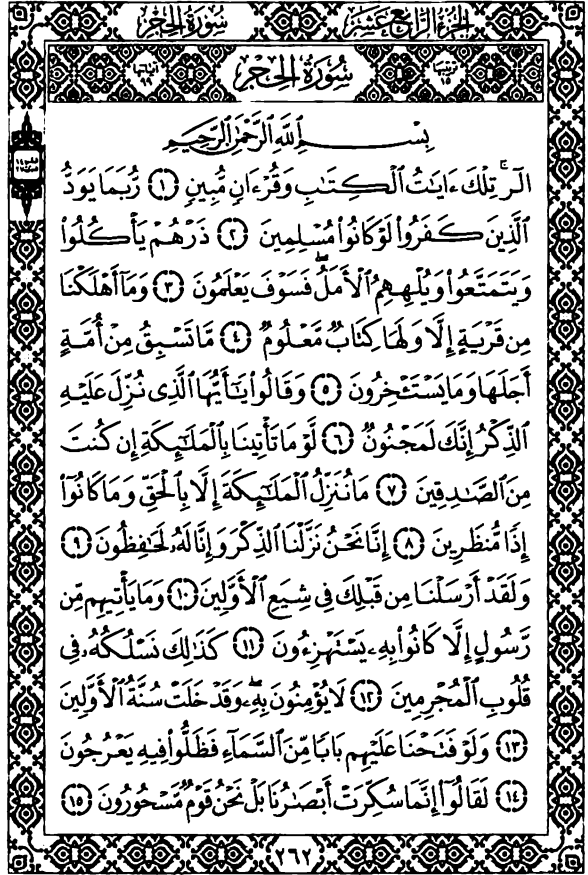 الجزء الرابع عشر
سورة الحجر
سورة الحجر
بِسْمِ ٱللَّهِ ٱلرَّحْمَٰنِ ٱلرَّحِيمِ
الٓر ۚ تِلْكَ ءَايَٰتُ ٱلْكِتَٰبِ وَقُرْءَانٍ مُّبِينٍ ١ رُّبَمَا يَوَدُّ
ٱلَّذِينَ كَفَرُوا۟ لَوْ كَانُوا۟ مُسْلِمِينَ ٢ ذَرْهُمْ يَأْكُلُوا۟
وَيَتَمَتَّعُوا۟ وَيُلْهِهِمُ ٱلْأَمَلُ ۖ فَسَوْفَ يَعْلَمُونَ ٣ وَمَآ أَهْلَكْنَا
مِن قَرْيَةٍ إِلَّا وَلَهَا كِتَابٌ مَّعْلُومٌ ٤ مَّا تَسْبِقُ مِنْ أُمَّةٍ
أَجَلَهَا وَمَا يَسْتَـْٔخِرُونَ ٥ وَقَالُوا۟ يَٰٓأَيُّهَا ٱلَّذِى نُزِّلَ عَلَيْهِ
ٱلذِّكْرُ إِنَّكَ لَمَجْنُونٌ ٦ لَّوْ مَا تَأْتِينَا بِٱلْمَلَٰٓئِكَةِ إِن كُنتَ
مِنَ ٱلصَّٰدِقِينَ ٧ مَا نُنَزِّلُ ٱلْمَلَٰٓئِكَةَ إِلَّا بِٱلْحَقِّ وَمَا كَانُوٓا۟
إِذًا مُّنظَرِينَ ٨ إِنَّا نَحْنُ نَزَّلْنَا ٱلذِّكْرَ وَإِنَّا لَهُۥ لَحَٰفِظُونَ ٩
وَلَقَدْ أَرْسَلْنَا مِن قَبْلِكَ فِى شِيَعِ ٱلْأَوَّلِينَ ١٠ وَمَا يَأْتِيهِم مِّن
رَّسُولٍ إِلَّا كَانُوا۟ بِهِۦ يَسْتَهْزِءُونَ ١١ كَذَٰلِكَ نَسْلُكُهُۥ فِى
قُلُوبِ ٱلْمُجْرِمِينَ ١٢ لَا يُؤْمِنُونَ بِهِۦ ۖ وَقَدْ خَلَتْ سُنَّةُ ٱلْأَوَّلِينَ
١٣ وَلَوْ فَتَحْنَا عَلَيْهِم بَابًا مِّنَ ٱلسَّمَآءِ فَظَلُّوا۟ فِيهِ يَعْرُجُونَ
١٤ لَقَالُوٓا۟ إِنَّمَا سُكِّرَتْ أَبْصَٰرُنَا بَلْ نَحْنُ قَوْمٌ مَّسْحُورُونَ ١٥
٢٦٢